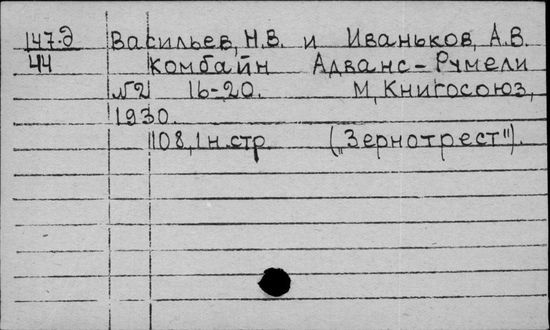 147-Д Васильев, Н.В. и Иваньков, А.В.
44 Комбайн Адванс-Румели
№2 16-20. М, Книгосоюз,
1930.
108, 1 н.стр. ("Зернотрест").